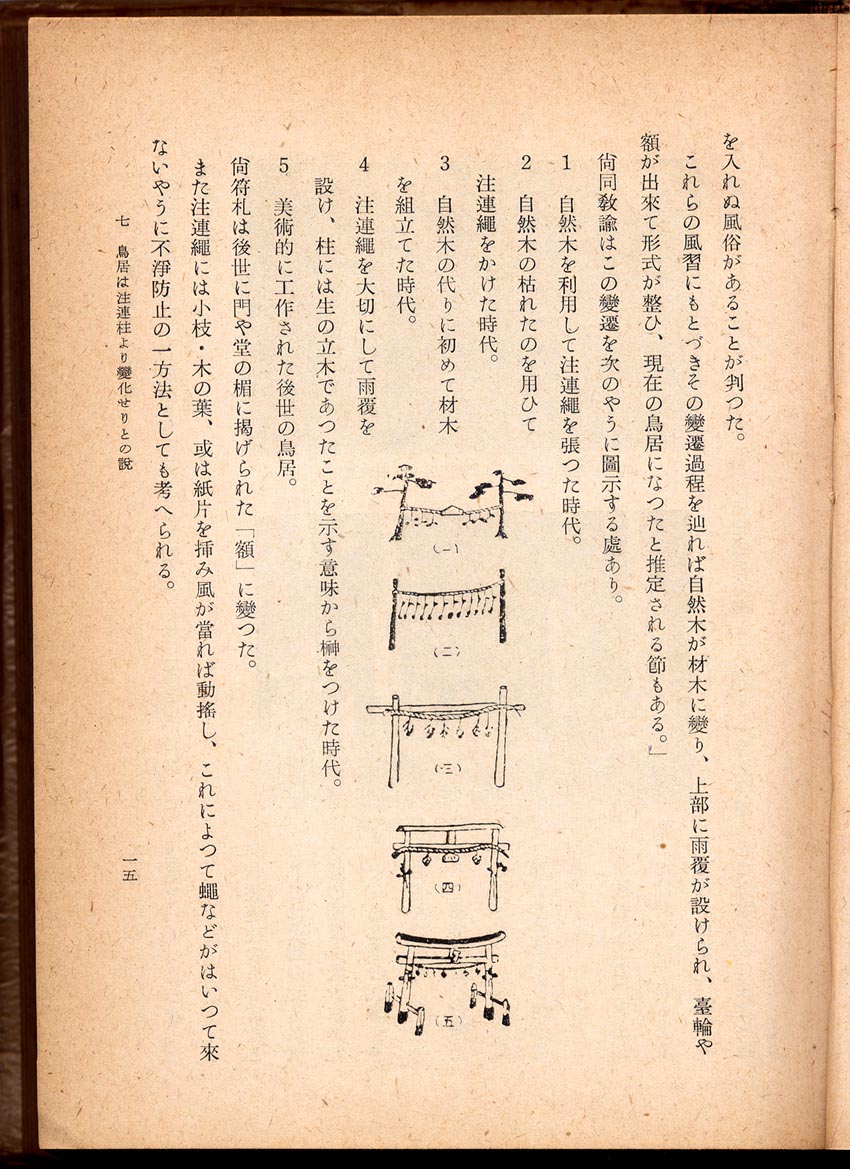 を入れぬ風俗があることが判つた。
これらの風習にもとづきその變遷過程を辿れば自然木が材木に變り、上部に雨覆が設けられ、臺輪や
額が出來て形式が整ひ、現在の鳥居になつたと推定される節もある。」
尙同敎諭はこの變遷を次のやうに圖示する處あり。
1 自然木を利用して注連繩を張つた時代。
2 自然木の枯れたのを用ひて
注連繩をかけた時代。
3 自然木の代りに初めて材木
を組立てた時代。
4 注連繩を大切にして雨覆を
設け、柱には生の立木であつたことを示す意味から榊をつけた時代。
5 美術的に工作された後世の鳥居。
尙符札は後世に門や堂の楣に揭げられた「額」に變つた。
また注連繩には小枝・木の葉、或は紙片を揷み風が當れば動搖し、これによつて蠅などがはいつて來
ないやうに不淨防止の一方法としても考へられる。
(一)
(二)
(三)
(四)
(五)
七 鳥居は注連柱より變化せりとの說
一五